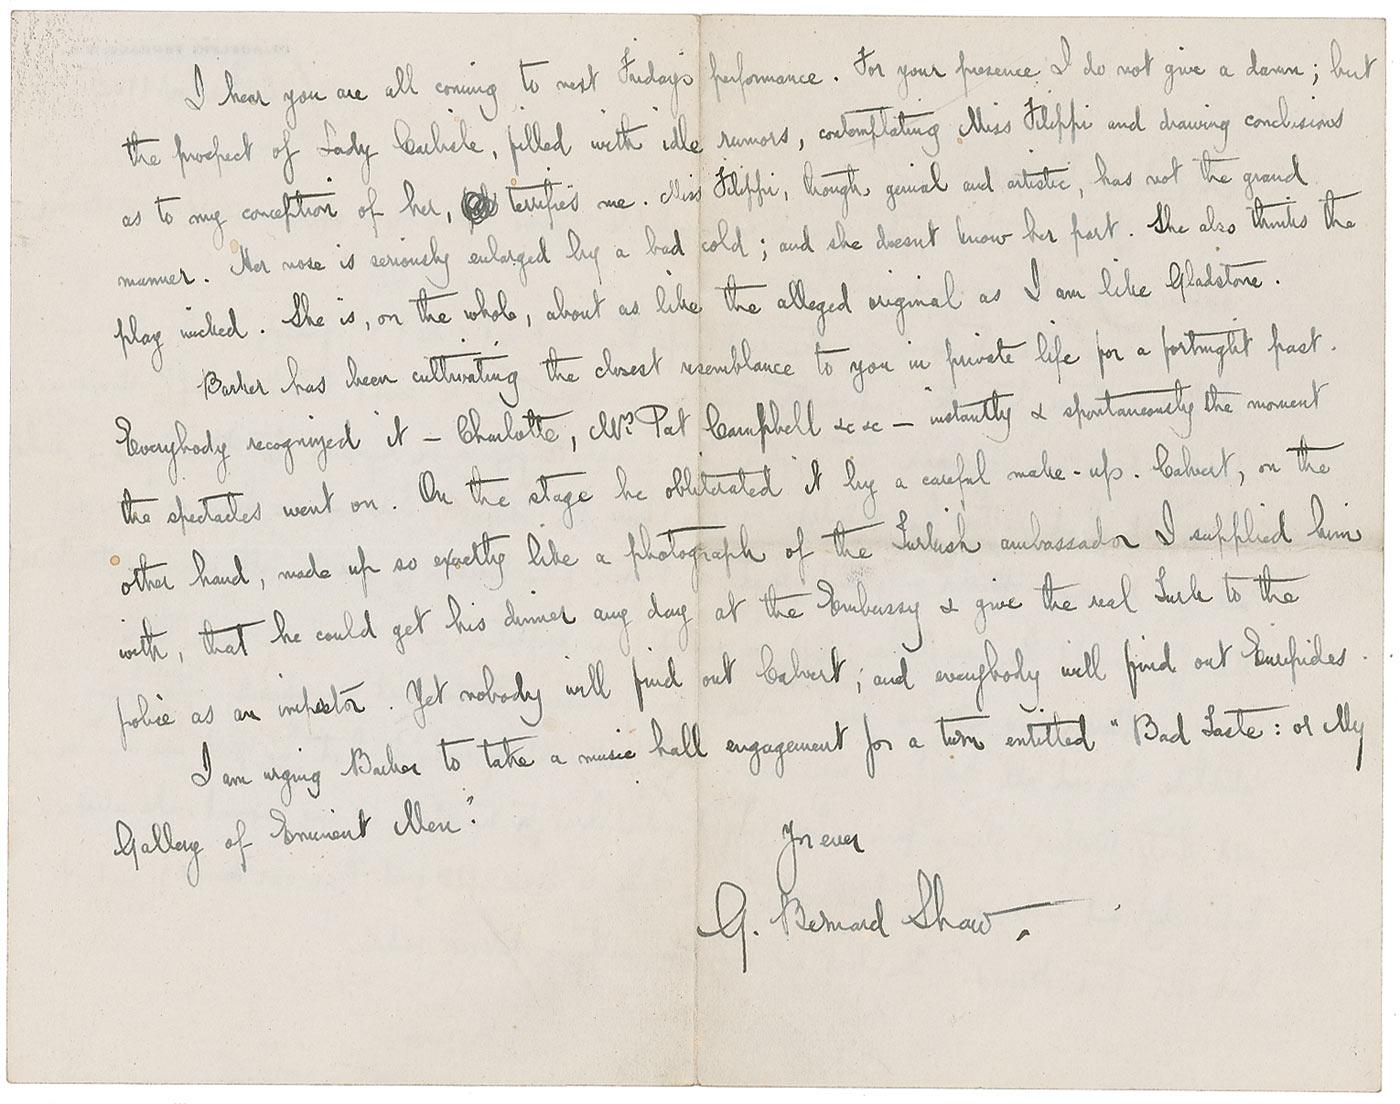 I hear you are all coming to next Friday's performance. For your presence I do not give a damn; but
the prospect of Lady Carlisle, filled with idle rumors, contemplating Miss Filippi and drawing conclusions
as to my conception of her, terrifies me. Miss Filippi, though genial and artistic, has not the grand
manner. Her nose is seriously enlarged by a bad cold; and she doesnt know her part. She also thinks the
play wicked. She is, on the whole, about as like the alleged original as I am like Gladstone.
Barker has been cultivating the closest resemblance to you in private life for a fortnight past.
Everybody recognized it – Charlotte, Mrs Pat Campbell &c &c – instantly & spontaneously the moment
the spectacles went on. On the stage he obliterated it by a careful make-up. Calvert, on the
other hand, made up so exactly like a photograph of the Turkish ambassador I supplied him
with, that he could get his dinner any day at the Embassy & give the real Turk to the
police as an impostor. Yet nobody will find out Calvert; and everybody will find out Euripides.
I am urging Barker to take a music hall engagement for a turn entitled "Bad Taste: or My
Gallery of Eminent Men."
Yrs ever
G. Bernard Shaw.